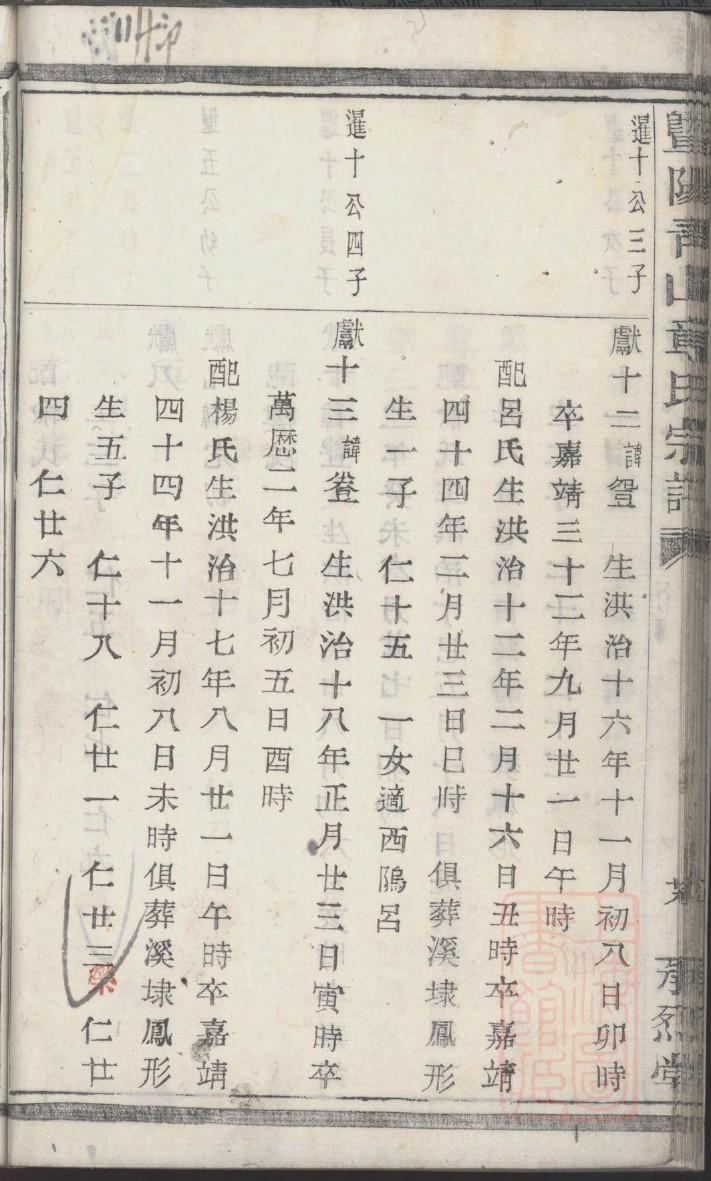 暨陽青山章氏宗譜
承烈堂
暹十公三子
獻十二諱𢍰 生洪治十六年十一月初八日卯時
卒嘉靖三十二年九月廿一日午時
配呂氏生洪治十二年二月十六日丑時卒嘉靖
四十四年二月廿三日巳時 俱葬溪埭鳳形
生一子 仁十五 一女適西隖呂
暹十公四子
獻十三諱 生洪治十八年正月廿三日寅時卒
萬歷二年七月初五日酉時
配楊氏生洪治十七年八月廿一日午時卒嘉靖
四十四年十一月初八日未時俱葬溪埭鳳形
生五子 仁十八 仁廿一 仁廿三 仁廿
四 仁廿六